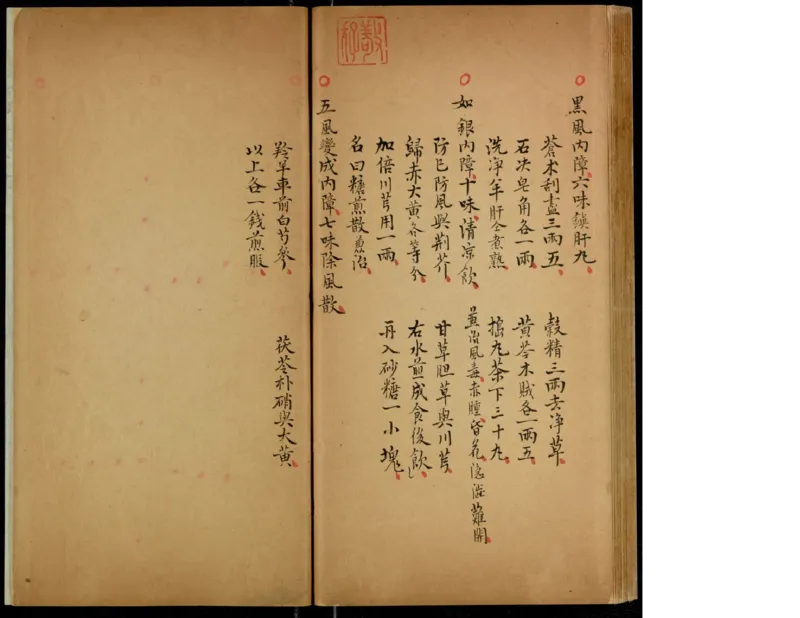 黑風內障六味鎮肝丸
蒼朮刮盡三兩五 穀精三兩去淨草
石决皂角各一兩 黃芩木賊各一兩五
洗淨羊肝仝煮熟 搗丸茶下三十丸
如銀內障十味清凉飲 兼治風毒赤腫昏花隱澁難開
防已防風與荆芥 甘草胆草與川芎
歸赤大黃各等分 右水煎成食後飲
加倍川芎用一兩 再入砂糖一小塊
名曰糖煎散兼治
五風變成內障七味除風散
羚羊車前白芍參 茯苓朴硝與大黃
以上各一錢煎服